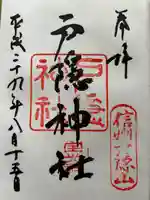 奉拝
戸隠神社
平成二十九年八月十五日
信州戸隠山